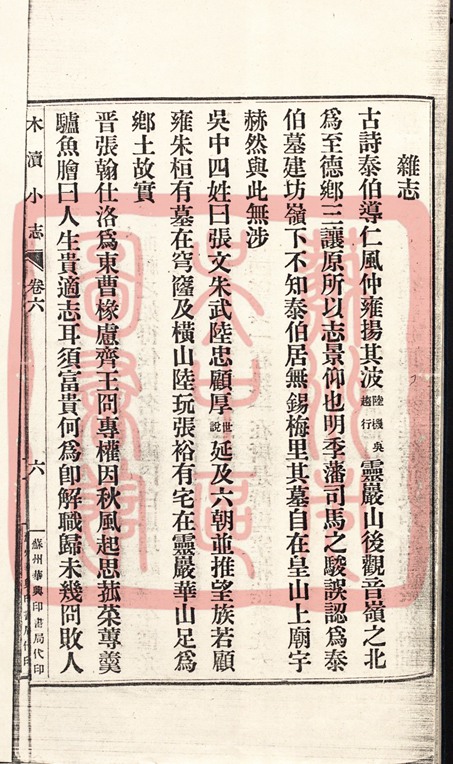 雜志
古詩泰伯導仁風仲雍揚其波陸機吳趨行靈巖山後觀音嶺之北
爲至德鄉三讓原所以志景仰也明季藩司馬之駿誤認爲泰
伯墓建坊嶺下不知泰伯居無錫梅里其墓自在皇山上廟宇
赫然與此無涉
吳中四姓曰張文朱武陸忠顧厚世說延及六朝並推望族若顧
雍朱桓有墓在穹窿及橫山陸玩張裕有宅在靈巖華山足爲
鄉土故實
晉張翰仕洛爲東曹椽慮齊王冏專權因秋風起思菰菜蓴羹
驢魚膾曰人生貴適志耳須富貴何爲卽解職歸未幾冏敗人
木瀆小志
卷六
六
蘇州華興印書局代印